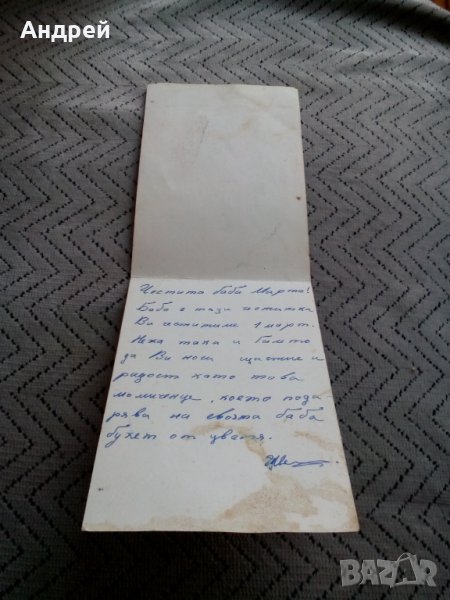 Андрей
Честита баба Марта!
Бабо с тази
Ви честитиме 1 март.
Нека така и
да Ви носи щастие и
радост като това
момиченце, което пода
рява на своята баба
букет от цветя.
BAZAR